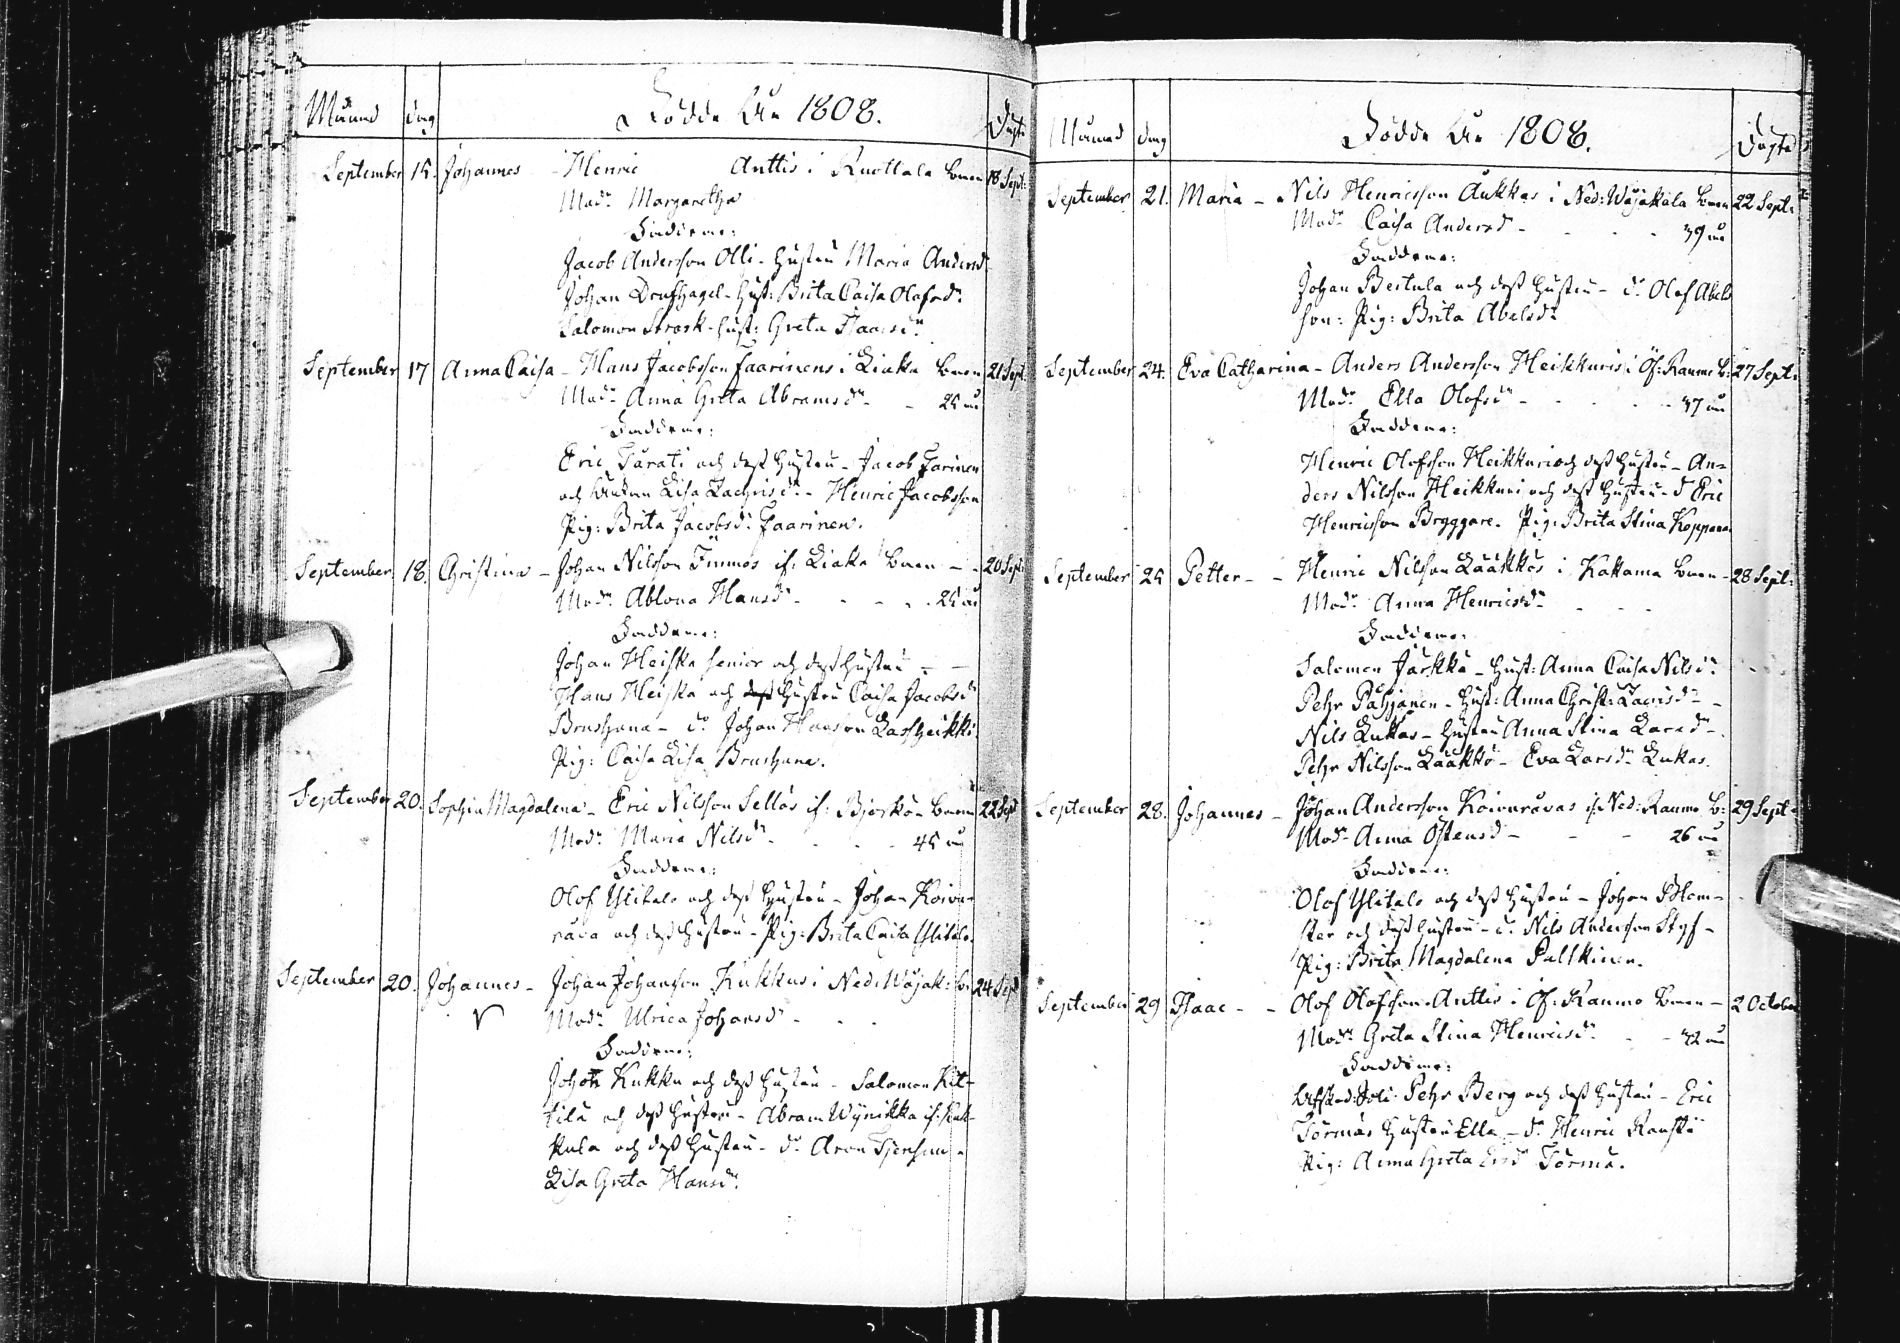 Månad dag Födde År 1808. Döpte
September 15. Johannes - Henric Anttis i Ruottala Boren 18 Sept:
Modr Margaretha
Faddrar:
Jacob Andersson Olli - Hustru Maria Andersdr
Johan Drufhagel - Hust: Brita Caisa Olofsdr
Salomon Strask - Hust: Greta Isacsdr
September 17 Anna Caisa - Hans Jacobsson Faarinens i Liaka 21 Sept.
Modr Anna Greta Abramsdr - - 25 år
Faddrar:
Eric Turati och dess Hustru - Jacob Farinen
och Lisa Zachrisdr - Henric Jacobsson
Pig: Brita Jacobsdr Faarinen.
September 18. Christina - Johan Nilsson Timmos if: Liaka - - 20 Sept:
Modr Ablona Hansdr - - - - 25 år
Faddrar:
Johan Heiska senior och dess Hustru - -
Hans Heiska och dess Hustru Caisa Jacobsdr
Brushana - dr Johan Hansson Lassheikki
Pig: Caisa Lisa Brushane.
September 20. Sophia Magdalena - Eric Nilsson Sellös if: Björkö 22 Sept
Modr Maria Nilsdr - - - - 45 år
Faddrar:
Olof Ylitalo och dess Hustru - Johan Koivu-
rava och dess Hustru - Pig: Brita Caisa Ylitalo.
September 20. Johannes - Johan Johansson Kukkus i Ned: Wojak: 24 Sept
Modr Ulrica Johansdr - - -
Faddrar:
Johan Kukku och dess Hustru - Salomon Kit-
tilä och dess Hustru - Abram Wynikka if:
kula och dess Hustru - dr Aron
Lisa Greta Hansdr
Månad dag Födde År 1808. Döpte
September 21. Maria - Nils Henricsson Aukkas i Ned: Wojakala 22 Sept:
Modr Caisa Andersdr - - - - 39 år
Faddrar:
Johan Bertula och dess Hustru - dr Olof Abels
son: Pig: Brita Abelsdr
September 24. Eva Catharina - Anders Andersson Heikkuris i Öf: Raumo B: 27 Sept:
Modr Ella Olofsdr - - - - 37 år
Faddrar:
Henric Olofsson Heikkuri och dess Hustru - An-
ders Nilsson Heikkuri och dess Hustru - d Eric
Henricsson Bryggare. Pig: Brita Stina Koppana
September 25 Petter - - Henric Nilsson Lääkkös i Kakkama - 28 Sept:
Modr Anna Henricsdr - - -
Faddrar:
Salomon Jarkkä - Hust: Anna Caisa Nilsdr
Pehr Pahjanen - Hust: Anna Christ: Lacrisdr - -
Nils Lukas - Hustru Anna Stina Larsdr -
Pehr Nilsson Lääkkö - Eva Larsdr Lukas.
September 28. Johannes - Johan Andersson Koivuravas if: Ned: Raumo B: 29 Sept:
Modr Anna Östensdr - - - 26 år
Faddrar:
Olof Ylitalo och dess Hustru - Johan Blom-
ster och dess Hustru - dr Nils Andersson Styf -
Pig: Brita Magdalena Palkkinen.
September 29 Isaac - - Olof Olofsson Anttis i Öf: Raumo - 2 October
Modr Greta Stina Henricsdr - - 32 år
Faddrar:
Afsked: Sold: Pehr Berg och dess Hustru - Eric
Törmäs Hustru Ella - dr Henric
Pig: Anna Greta Ersdr Törmä.